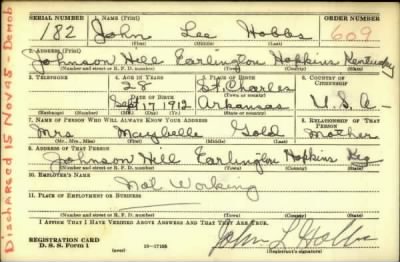 SERIAL NUMBER 1. NAME (Print) ORDER NUMBER
182 John Lee Hobbs 609
(First) (Middle) (Last)
2. ADDRESS (Print)
Johnson Hill Earlington Hopkins Kentucky
(Number and street or R. F. D. number) (Town) (County) (State)
3. TELEPHONE 4. AGE IN YEARS 5. PLACE OF BIRTH 6. COUNTRY OF CITIZENSHIP
28 St. Charles
(Town or county)
DATE OF BIRTH
Sept 17 1912 Arkansas U.S.A-
(Exchange) (Number) (Mo.) (Day) (Yr.) (State or country)
7. NAME OF PERSON WHO WILL ALWAYS KNOW YOUR ADDRESS 8. RELATIONSHIP OF THAT PERSON
Mrs Maybelle Gold Mother
(Mr., Mrs., Miss) (First) (Middle) (Last)
9. ADDRESS OF THAT PERSON
Johnson Hill Earlington Hopkins Ky
(Number and street or R. F. D. number) (Town) (County) (State)
10. EMPLOYER'S NAME
Not Working
11. PLACE OF EMPLOYMENT OR BUSINESS
(Number and street or R. F. D. number) (Town) (County) (State)
I AFFIRM THAT I HAVE VERIFIED ABOVE ANSWERS AND THAT THEY ARE TRUE.
REGISTRATION CARD
D. S. S. Form 1 (over) 16-17105 John L Hobbs
(Registrant's signature)
Discharged 15 Nov 45 - Demob